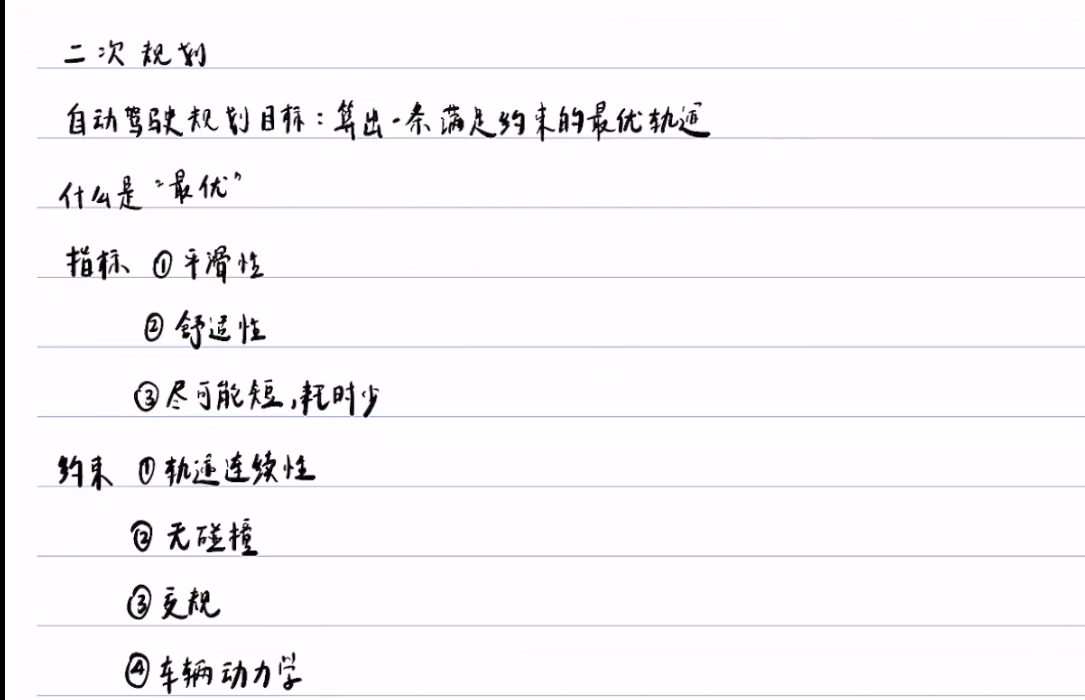 二次规划
自动驾驶规划目标：算出一条满足约束的最优轨迹
什么是“最优”
指标 ①平滑性
②舒适性
③尽可能短,耗时少
约束 ①轨迹连续性
②无碰撞
③交规
④车辆动力学